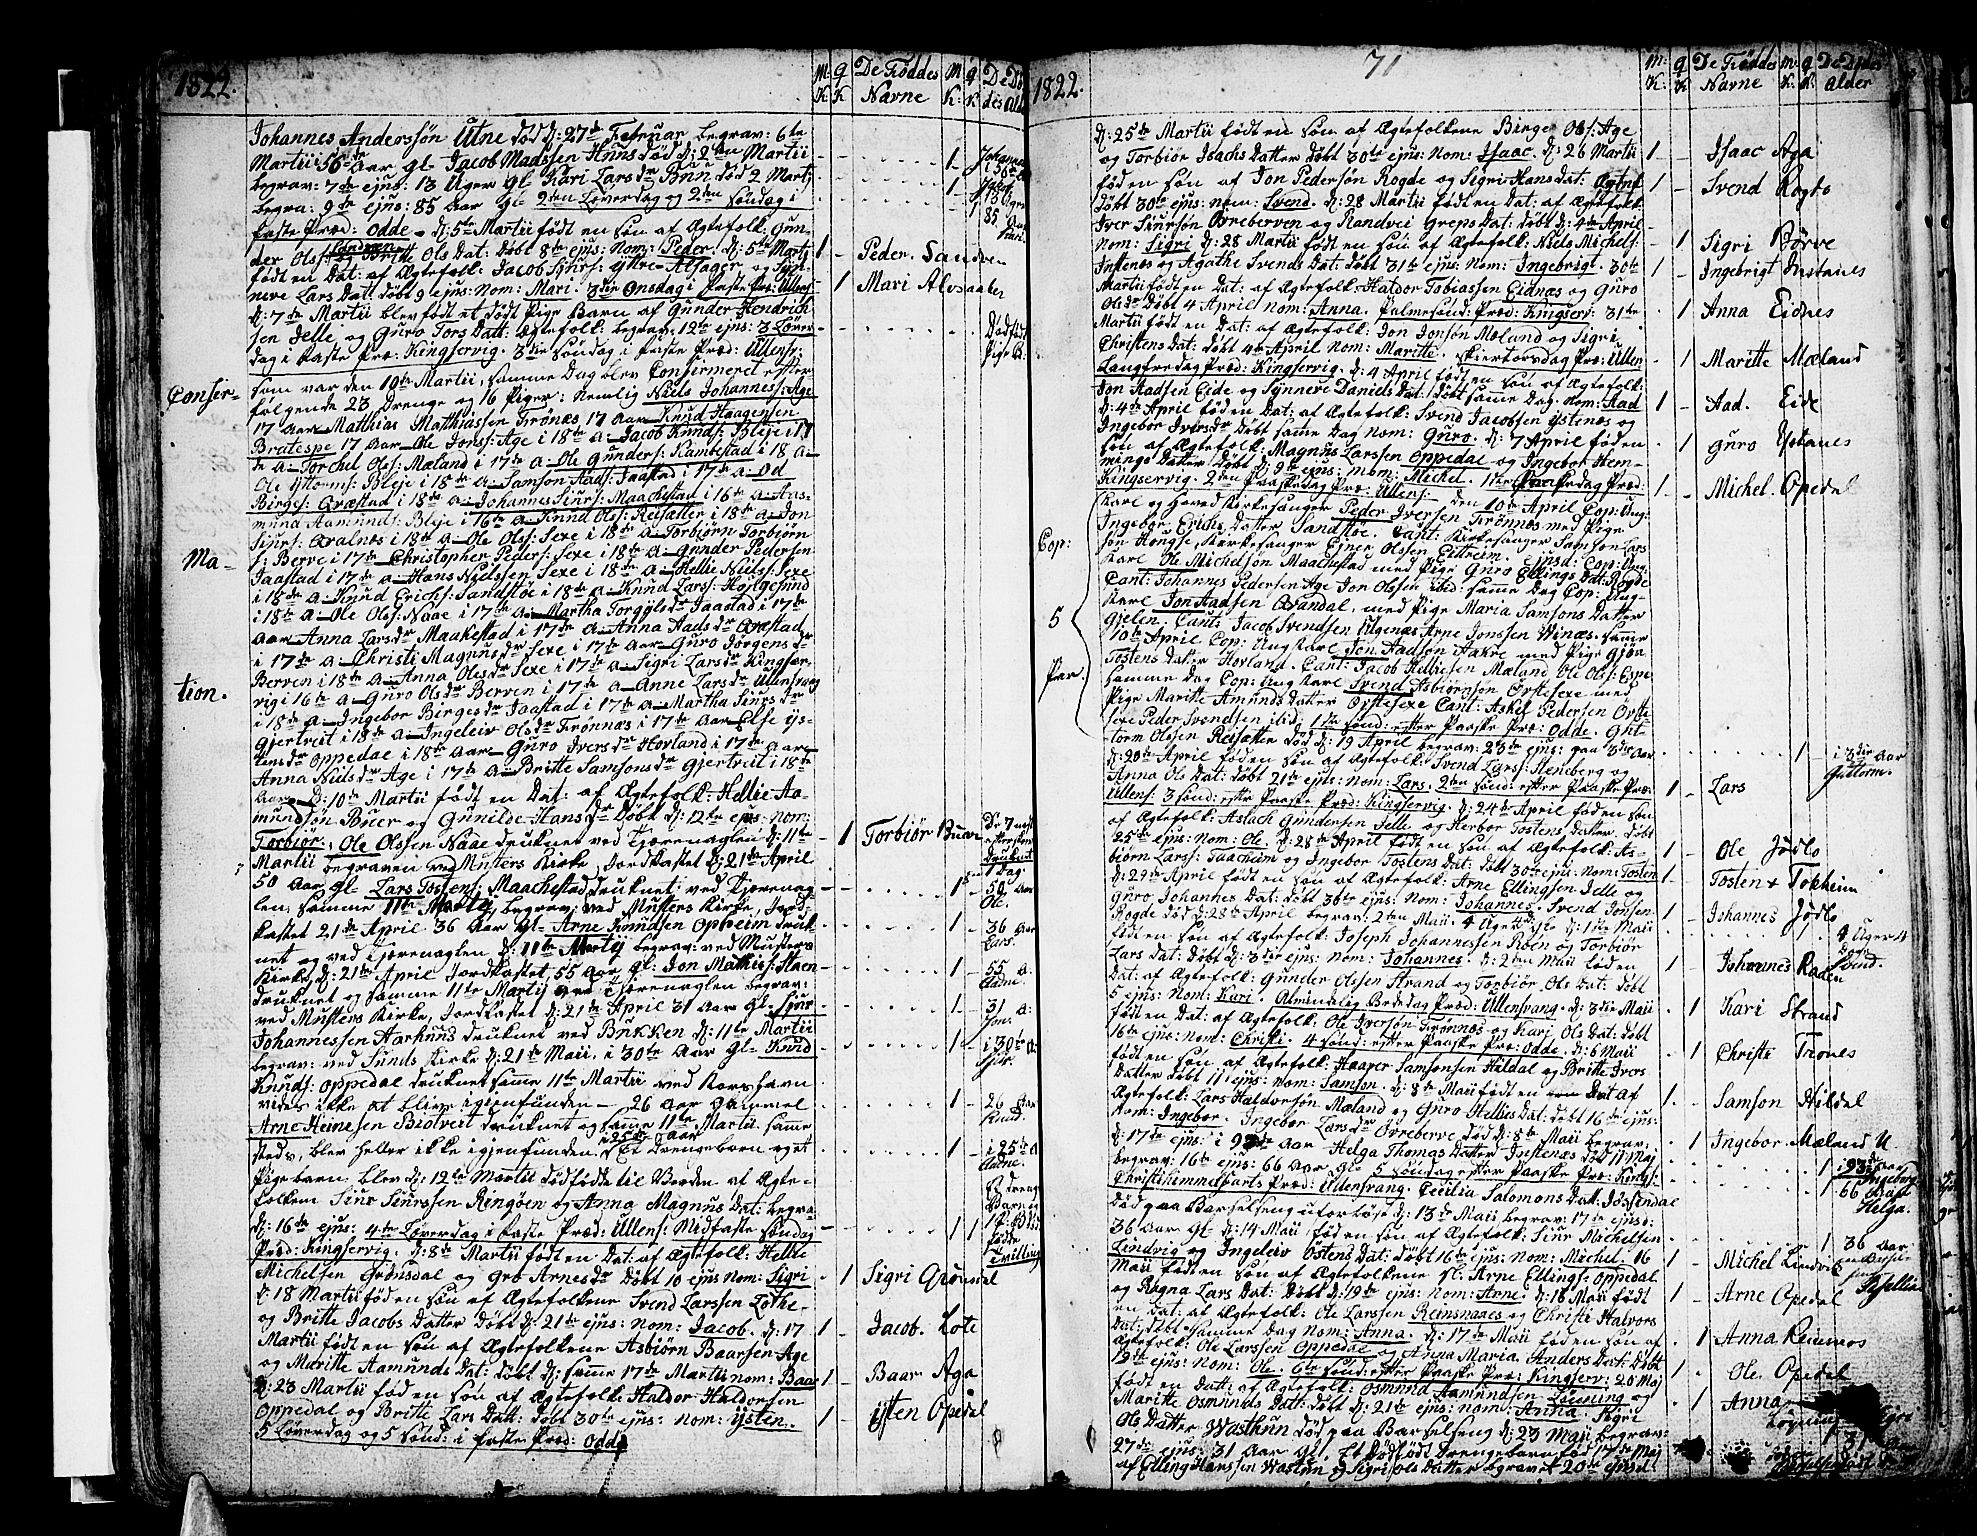 1822.
M: K
q K
DeFöddes Navne
M K:
q K
De Dö des Al
Johannes Anderssön Utne död d: 27de Februar begrav: 6te
Martii i 56de Aar gl Jacob Madssen Huus död d: 2den Martii
begrav: 7de ejus: 13 Uger Gl Kari Lars dr död 2 Martij
begra: 9de ejus: 85 Aar Gl 2den Löverdag og 2den Söndag i
faste Præd: Odde d: 5te Martii födt en sön af Ægtefolk: Gun-
der Ols: Sandven Britte Ols Dat: Döbt 8de ejus: Nom: Peder. d: 5te Martij
födt en Dat: af Ægtefolk: Jacob Ytre Alsager og Syn-
neve Lars Dat: döbt 9 ejus: nom: Mari. 3die Onsdag i faste Præd: Ullens:
d: 7de Martii blev födt et dödt Pige Barn af Gunder Hendrich
sen Jelle og Guro Tors Datt: Ægtefolk: begrav: 12te ejus: 3 Löver
dag i faste Præ: Kingservig. 3die Söndag i faste Præd: Ullens:
som var den 10de Martii, samme Dag blev Confirmerit efter
fölgende 23 Drenge og 16 Piger: Nemlig Niels Johannes: Age
17 Aar Mathias Matthiassen Trönæs 17 Aar Knud Haagensen
Bratespe 17 Aar Ole Jons: Age i 18de a: Jacob Knuds: Bleje i 17
de a: Torchel Ols: Mæland i 17de a: Ole Gunders: Kambestad i 18 a:
Ole Bleje i 18de a: Samson Aads: Jaastad i 17de a: Od
Birges: Qvæstad i 18de a: Johannes Siurs: Maachestad i 16de a: Aas-
mund Aamunds: Bleje i 16de a: Knud Ols: Reisæter i 18de a: Jon
Siurs: Qvalnæs i 18de a: Ole Ols: Sexe i 18de a: Torbiörn Torbiörn
s: Berve i 17de Christopher Peders: Sexe i 18de a: Gunder Pedersen
Jaastad i 17de a: Hans Nielssen Sexe i 18de a: Hellie Niels: Sexe
i 18de a: Knud Erichs: Sandstöe i 18de a: Knud Lars:
i 18de a: Ole Ols: Naae i 17de a: Martha Torgÿls dr Jaastad i 17de
Aar Anna Lars dr Maakestad i 17de a: Anna Aads dr Qvæstad
i 17de a: Christi Magnus dr Sexe i 17de a: Guro Jörgens dr
Berven i 18de a: Anna Oles dr Sexe i 17de a: Sigri Lars dr Kingser-
vig i 16de a: Guro Ols dr Berven i 17de a: Anne Lars dr Ullensvang
i 18de a: Ingebor Birges dr Jaastad i 17de a: Martha Siurs dr
Gjertveit i 18de a: Ingeleiv Ols dr Trönnæs i 17de Aar Else Ÿs-
tens dr Oppedae i 18de Aar Guro Ivers dr Hovland i 17de Aar
Anna Niels dr Age i 17de a: Britte Samsons dr Gjertveit i 18de
Aar. d: 10de Martii födt en Dat: af Ægtefolk: Hellie Aa-
mundsön Buer og Gunilde Hans dr Döbt d: 12te ejus: nom:
Torbiör. Ole Olssen Naae druknet ved Tjærenaglen d: 11te
Martii begraven ved Musters Kirke, Jordkastet d: 21de April
50 Aar gl Lars Tostens: Maachestad druknet ved Tjærenag-
len samme 11te Martij begrav: ved Musters Kirke, Jord-
kastet 21de April 36 Aar gl Arne Knudsen Opheim druk-
net og ved Tjærenaglen d: 11te Martij begrav: ved Musters
Kirke d: 21de April Jordkastet 55 Aar gl: Jon Mathis: Haen
druknet og samme 11te Martij ved Tjærenaglen begrav:
ved Musters Kirke, Jordkastet d: 21de April 31 Aar gl Siur
Johannessen Aarhuus druknet ved Bukken d: 11te Martii
begrav: ved Sunds Kirke d: 21de Maii, i 30te Aar gl Knud
Knuds: Oppedal druknet samme 11te Martii ved Korshavn
vides ikke at blive igjenfunden 26 Aar gammel
Arne Heinesen Biotveit druknet og samme 11te Martii samme
steds, blev heller ikke igjenfunden i 25de Aar Et Drengebarn og et
Pigebarn blev d: 12te Martii dödfödt til Verden af Ægte-
folken Siur Siurssen Ringöen og Anna Magnus Dat: begra
d: 16de ejus: 4de Löverdag i faste Præd: Ullens: Midfaste Söndag
Præd: Kingservig. d: 8de Martii födt en Dat: af Ægtefolk: Hellie
Michelsen Grönsdal og Gro Arnes dr Döbt 10 ejus nom: Sigri
d: 18 Martii föd en sön af Ægtefolkene Svend Larssen Lothe
og Britte Jacobs Datter Döbt d: 21de ejus: nom: Jacob. d: 17
Martii födt en sön af Ægtefolkene Asbiörn Baarsen Age
og Maritte Aamunds Dat: döbt d: samme 17de Martii nom: Baar
d: 23 Martii föd en sön af Ægtefolk: Haldor Haldorsen
Oppedal og Britte Lars Datt: döbt 30te ejus: nom: Ysten.
5 Löverdag og 5 Sönd: i faste Præd: Odde
Confir-
Ma-
tion.
Peder. Sandven
Mari Alvsaaker
Dödfödt Pige B:
Torbiör Buar
50 Aar Ole.
36 Aar Lars.
55 a: Arne.
31 a: Jon.
i 30te a: Siur.
26 Aar Knud.
i 25de a Arne.
Sigri Grönsdal
Jacob. Lote
Baar Aga
Ÿsten Opedal
1822.
71
M: K.
q K
De Föddes Navne
M: K.
q K.
De Dödes Alder
d: 25de Martii födt en sön af Ægtefolkene Birge Ols: Age
og Torbiör Isachs Datter Döbt 30te ejus: Nom: Isaac. d: 26 Martii
föd en sön af Jon Pedersön Rogde og Sigri Hans Dat: Ægtef:
döbt 30te ejus: nom: Svend. d: 28 Martii födt en Dat: af Ægtefolk:
Iver Siursön Övreberven og Randvei Greps Dat: döbt d: 4de April
Nom: Sigri d: 28 Martii födt en sön af Ægtefolk: Niels Michels:
Instenæs og Agathe Svends Dat: döbt 31te ejus: nom: Ingebrigt. 30te
Martii födt en Dat: af Ægtefolk: Haldor Tobiassen Eidnæs og Guro
Ols dr Döbt 4 April nom: Anna. Palmesönd: Præd: Kingserv: 31te
Martii födt en Dat: af Ægtefolk: Jon Jonsön Mæland og Sigri
Christens Dat: döbt 4de April Nom: Maritte. Skiertorsdag Præ: Ullen
Langfredag Præd: Kingservig. d: 4 April födt en sön af Ægtefolk:
Jon Aadsen Eide og Synneve Daniels Dat: Döbt samme Dag. Nom: Aad
d: 4de April föd en Dat: af Ægtefolk: Svend Jacobsen Ystenæs og
Ingebor Ivers dr Döbt samme Dag Nom: Guro. d: 7 April föd en
sön af Ægtefolk: Magnus Larssen Oppedal og Ingebor Hem-
mings Datter Döbt d: 9de ejus: nom: Michel. 1ste Paaskedag Præd:
Kingservig. 2den Paaskedag Præ: Ullens: den 10de April Cop: Ung-
karl og Hoved Kirkesanger Peder Iversen Trönnæs med Pige
Ingebor Erichs Datter Sandstöe. Caut: Kirkesanger Samson Lars
sön Hougse, Kirkesanger Einer Olssen Eitreim. Ejusd: Cop: Ung
karl Ole Michelsön Maachestad med Pige Guro Ellings Dat: Rogde
Caut: Johannes Pedersen Age Jon Olssen ibid: samme Dag Cop: Ung-
karl Jon Aadsen Qvandal, med Pige Maria Samsons Datter
Gjelen, Caut: Jacob Svendsen Arne Jonssen Vinæs. samme
10de April Cop: Ungkarl Jon Aadsön Aakre med Pige Gjör
Tostens Datter Hovland. Caut: Jacob Helliesen Mæland Ole Ols: Espe
samme Dag Cop: Ung Karl Svend Asbiörnsön Örstesexe med
Pige Maritte Amunds Datter Opstesexe Caut: Askel Pedersen Örste-
sexe Peder Svendsen ibid. 1ste Sönd: efter Paaske Præ: Odde. Gut-
torm Olssen Reisætter död d: 19 April begrav: 23de ejus: paa 3die Aar
d: 20de April föd en sön af Ægtefolk: Svend Lars: Steneberg og
Anna Ols Dat: Döbt 21de ejus: nom: Lars. 2den Sönd: efter Paaske Præ:
Ullens: 3 Sönd: efter Paaske Præd: Kingservig. d: 24de April föd en sön
af Ægtefolk: Aslach Gundersen Jelle og Herbor Tostens Datter. Döbt
25de ejus: Nom: Ole. d: 28de April födt en sön af Ægtefolk: As-
biörn Lars: Taacheim og Ingebor Tostens Dat: döbt 30te ejus: nom: Tosten
d: 29de April födt en sön af Ægtefolk: Arne Ellingsen Jelle og
Guro Johannes Dat: döbt 30te ejus: Nom: Johannes. Svend Jonsen
Rogde död d: 28de April begrav: 2den Maii 4 Uger 4 D: gl: d: 1ste Maii
födt en sön af Ægtefolk: Joseph Johannessen Roen og Torbiör
Lars Dat: döbt d: 3die ejus: nom: Johannes. d: 2den Maii föd en
Dat: af Ægtefolk: Gunder Olssen Strand og Torbiör Ols Dat: döbt
5 ejus: Nom: Kari. Almindelig Bededag Præd: Ullensvang. d: 3die Maii
födt en Dat: af Ægtefolk: Ole Iversön Trönnæs og Kari Ols Dat: döbt
16te ejus: nom: Christi. 4 Sönd: efter Paaske Præ: Odde. d: 6 Maii
födt en sön af Ægtefolk: Haaper Samsonsen Hildal og Britte Ivers
Datter döbt 11te ejus: nom: Samson. d: 8de Maii födt en Dat af
Ægtefolk: Lars Haldorsön Mæland og Guro Hellies Dat: döbt 16te ejus:
Nom: Ingebor. Ingebor Lars dr Övreberve död d: 8de Maii begrav:
d: 17de ejus: i 93de Aar Helga Thomas Datter Instenæs död 11 Maj
begrav: 16te ejus: 66 Aar gl 5 Söndag efter Paaske Præ: Kings:
Christihimmelfarts Præd: Ullensvang. Cecilia Salomons Datt:
Död paa Barselseng d: 13de Maii begrav: 17de ejus:
36 Aar gl d: 14 Maii föd en sön af Ægtefolk: Siur Michelsen
Lindvig og Ingeleiv Östens Dat: döbt 16de ejus: nom: Michel. 16
Maii födt en sön af Ægtefolkene gl: Arne Ellings: Oppedal
og Ragna Lars Dat: döbt d: 19de ejus: nom: Arne. d: 18 Maii födt
en Dat: af Ægtefolk: Ole Larssen Reinsnaaes og Christi Halvors
Dat: döbt samme Dag nom: Anna. d: 17de Maii föd en sön af
Ægtefolk: Ole Larssen Oppedal og Anna Maria Anders Dat: döbt
19de ejus: nom: Ole. 6te Sönd: efter Paaske Præ: Kingserv: 20 Maj
födt en Datt: af Ægtefolk: Osmund Aamundsen Löining og
Maritte Osmunds Datt: döbt d: 21de ejus: nom: Anna. Sigri
Ols Datter Wasthun död paa Barselseng d: 23 Maii begrav:
27de ejus: 31 Aar gl. Et dödfödt Drengebarn föd 17de Maj
af Elling Hanssen Wastun og Sigri Ols Datter begravet 20de ejus:
Cop:
5
Par.
Isaac Aga
Svend Rogde
Sigri Börve
Ingebrigt Instanes
Anna Eidnes
Maritte Mæland
Aad. Eide
Guro Ystanes
Michel. Opedal
i 3die Aar Guttorm.
Lars
Ole Jödlo
Tosten Tokheim
Johannes Jödlo
4 Uger 4 D: Svend.
Johannes Raaen
Kari Strand
Christi Trones
Samson Hildal
Ingebor Mæland
i 93de Aar Ingebor
66 Aar Helga.
36 Aar
Michel Lindvik
Arne Opedal
Anna Reinsnos
Ole. Opedal
Anna
31